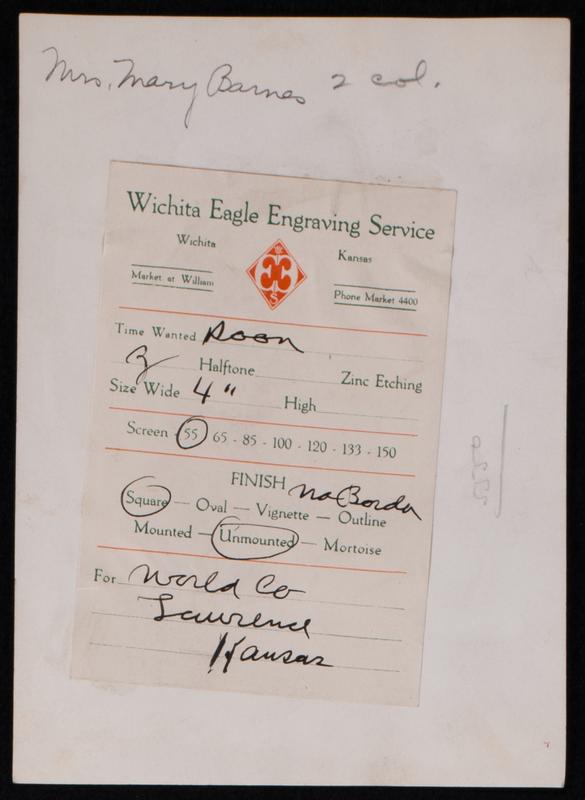 Mrs. Mary Barnes 2 col.
Wichita Eagle Engraving Service
Wichita Kansas
Market at William
Phone Market 4400
Time Wanted Noon
Halftone Zinc Etching
Size Wide 4" High
Screen 55 65 - 85 - 100 - 120 - 133 - 150
FINISH no Border
Square — Oval — Vignette — Outline
Mounted — Unmounted — Mortoise
For World Co
Lawrence
Kansas